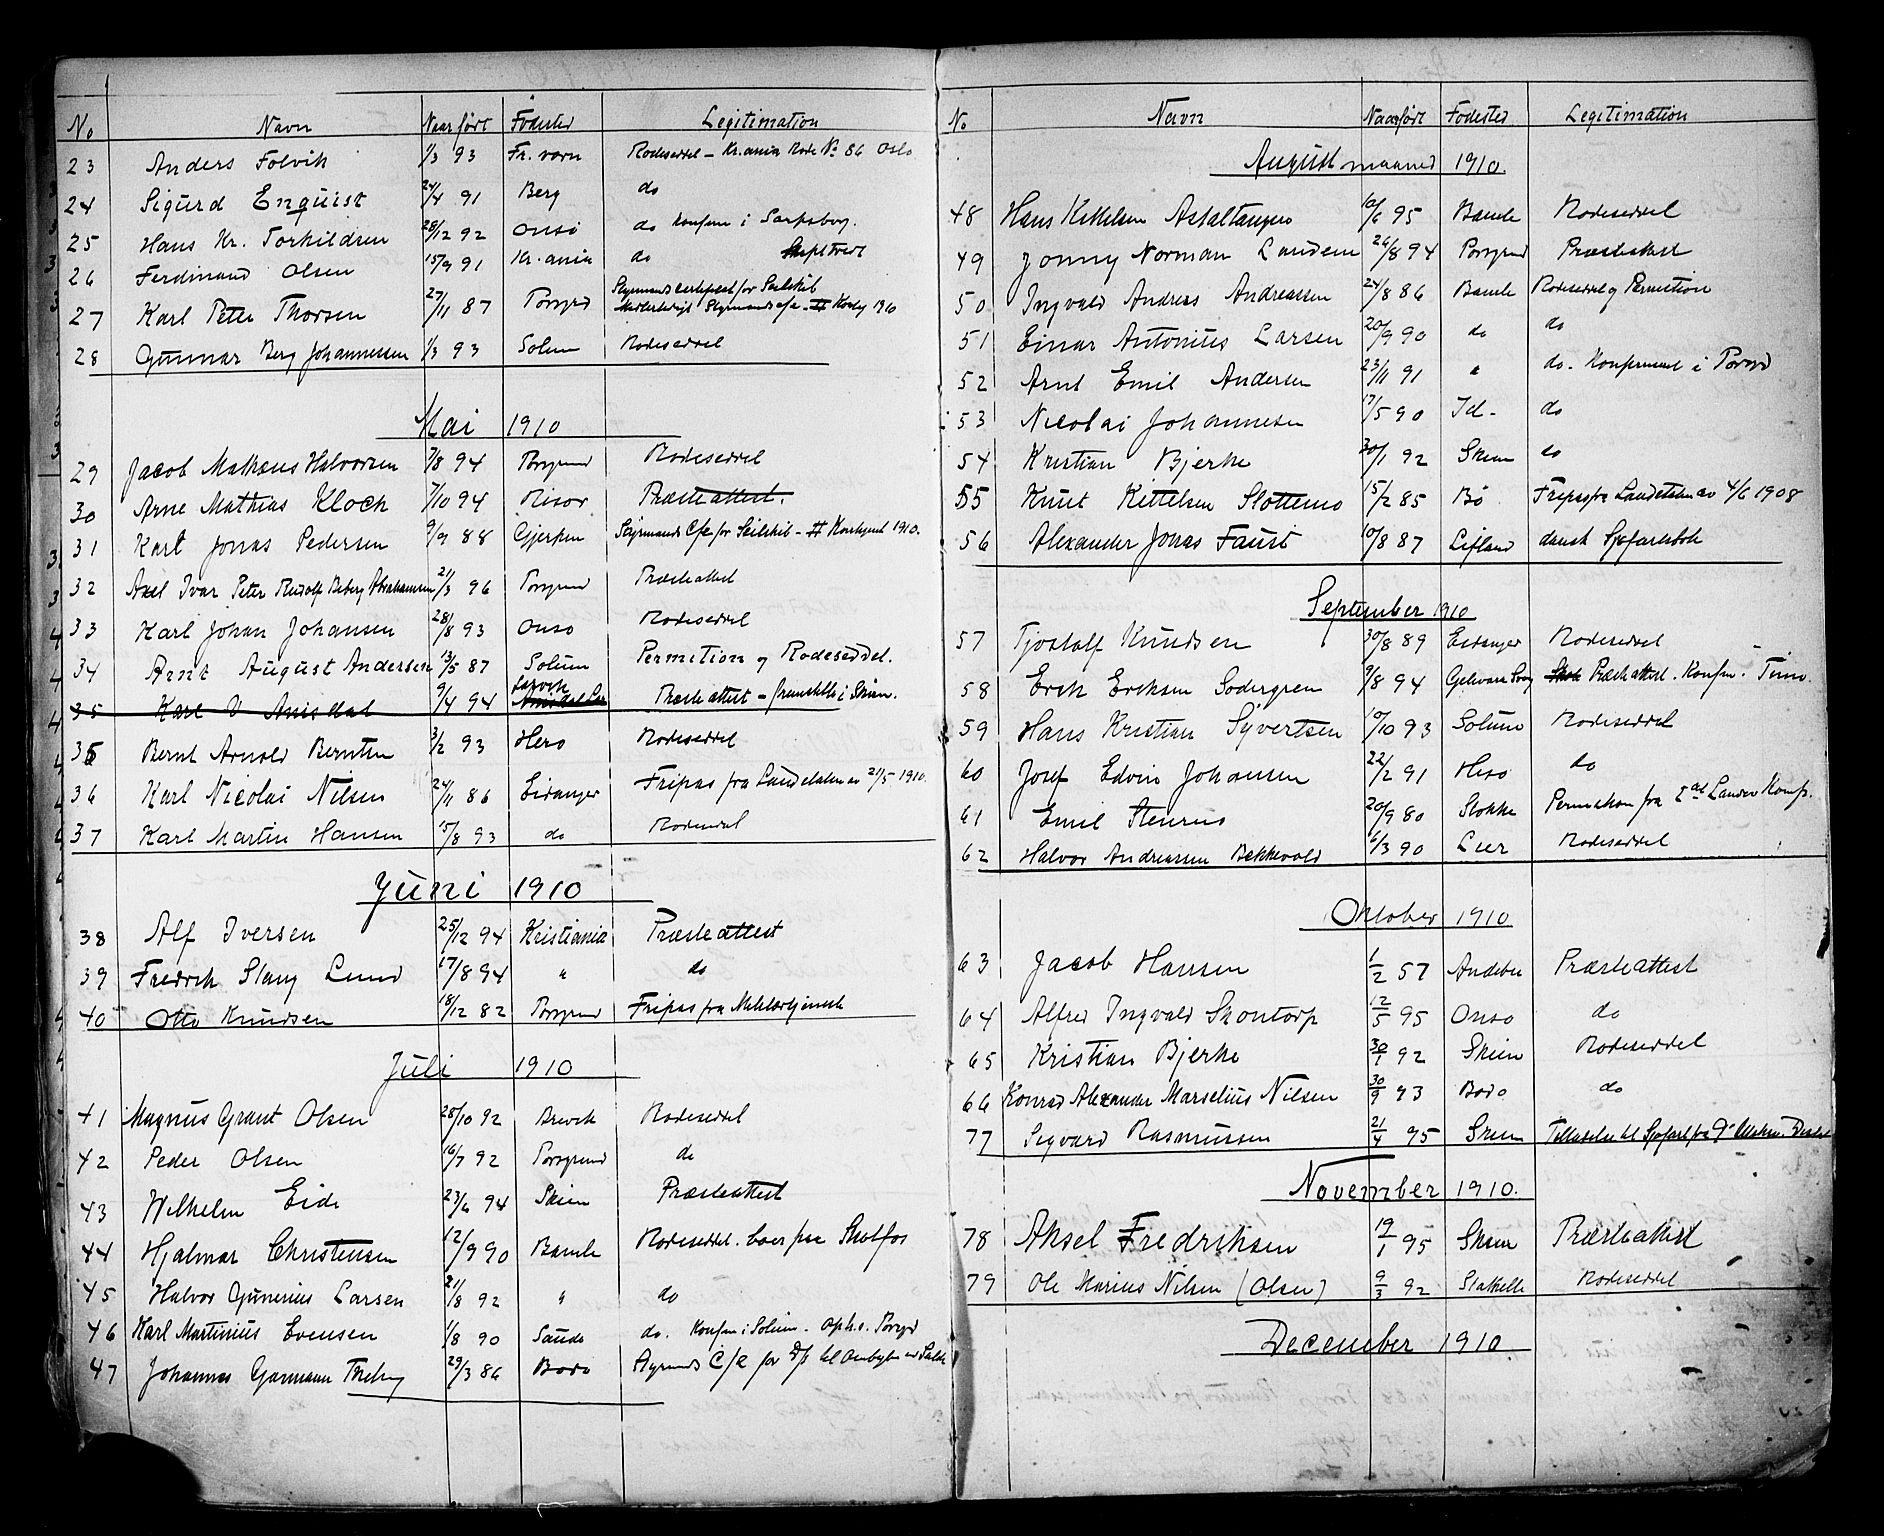 No Navn Naar født Fødested Legitimation
23 Anders Folvik 1/3 93 Fr. værn Rodeseddel – Kr.ania Rode No 86 Oslo
24 Sigurd Enquist 24/4 91 Berg do
25 Hans Kr. Torkildsen 28/12 92 Onsø do konfirm i Sarpsborg.
26 Ferdinand Olsen 15/9 91 Kr.ania do
27 Karl Peter Thorsen 27/11 87 Porsgrd Styrmandscertifikat for Seilskib
28 Gunnar Berg Johannessen 1/3 93 Solum Rodeseddel
Mai 1910
29 Jacob Mathæus Halvorsen 7/8 94 Porsgrund Rodeseddel
30 Arne Mathias Kloch 7/10 94 Risør Præsteattest.
31 Karl Jonas Pedersen 9/9 88 Gjerpen Styrmands C/c for Seilskib – 1910.
32 Axel Ivar Peter Rudolf Abrahamsen 21/3 96 Porsgrund Præsteattest
33 Karl Johan Johansen 28/8 93 Onsø Rodeseddel
34 Arnt August Andersen 13/5 87 Solum Permition og Rodeseddel.
35 Karl O Amdal 9/4 94 Larvik Præsteattest – fremstillt i Skien.
35 Bernt Arnold Berntsen 3/2 93 Herø Rodeseddel
36 Karl Nicolai Nilsen 24/11 86 Eidanger Fripas fra Landetaten av 21/5 1910.
37 Karl Martin Hansen 15/8 93 do Rodeseddel
Juni 1910
38 Alf Iversen 25/12 94 Kristiania Præsteattest
39 Fredrik Stang Lund 17/8 94 " do
40 Otto Knudsen 18/12 82 Porsgrund Fripas fra
Juli 1910
41 Magnus Grant Olsen 28/10 92 Brevik Rodeseddel
42 Peder Olsen 16/7 92 Porsgrund do
43 Wilhelm Eide 23/6 94 Skien Præsteattest
44 Hjalmar Christensen 12/9 90 Bamle Rodeseddel. boer paa Skotfos
45 Halvor Gunerius Larsen 21/8 92 " do
46 Karl Martinius Evensen 1/8 90 Saude do. Konfm i Solum. Oph. i Porsgd
47 Johannes Garmann 29/3 86 Bodø Styrmds C/c for D/s
No Navn Naar født Fødested Legitimation
August maaned 1910.
48 Hans Kittelsen 10/6 95 Bamle Rodeseddel
49 Jonny Norman Lundem 26/8 94 Porsgrund Præsteattest
50 Ingvald Andreas Andreassen 24/8 86 Bamle Rodeseddel og Permition
51 Einar Antonius Larsen 20/9 90 do do
52 Arnt Emil Andersen 23/11 91 " do. Konfirmert i Porsgd
53 Nicolai Johannesen 17/5 90 Id - do
54 Kristian Bjerke 30/1 92 Skien do
55 Knut Kittelsen Slottemo 15/2 85 Bø Fripas fra Landetaten av 4/6 1908
56 Alexander Jonas Faust 10/8 87 Lifland dansk Sjøfartsbok
September 1910
57 Tjostolf Knudsen 30/8 89 Eidanger Rodeseddel
58 Erik Eriksen Sodergren 9/8 94 Præsteattest. Konfm.
59 Hans Kristian Syvertsen 10/10 93 Solum Rodeseddel
60 Josef Edvin Johansen 22/2 91 Herø do
61 Emil Stenrus 20/9 80 Stokke Permition fra
62 Halvor Andreassen Bekkevold 6/3 90 Lier Rodeseddel
Oktober 1910
63 Jacob Hansen 1/2 57 Andebu Præsteattest
64 Alfred Ingvald Skontorp 12/5 95 Onsø do
65 Kristian Bjerke 30/1 92 Skien Rodeseddel
66 Konrad Alexander Marselius Nilsen 30/9 93 Bodø do
77 Sigvard Rasmussen 21/4 95 Skien Tilladelse til Sjøfart fra
November 1910.
78 Aksel Fredriksen 19/1 95 Skien Præsteattest
79 Ole Marius Nilsen (Olsen) 9/3 92 Stathelle Rodeseddel
December 1910